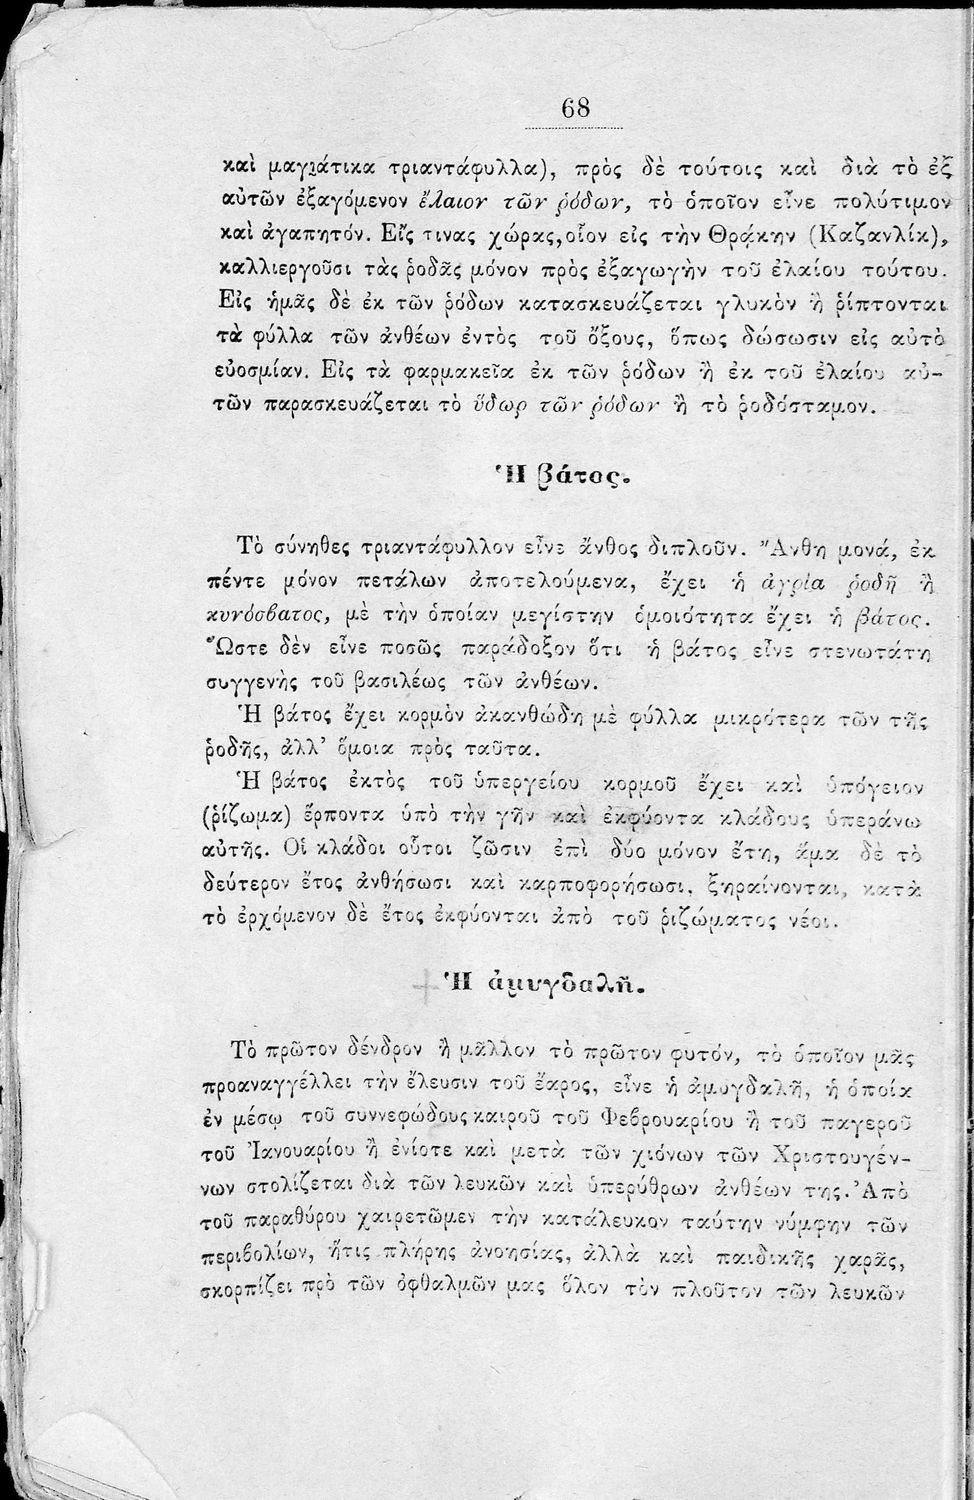 68
καὶ μαγιάτικα τριαντάφυλλα), πρὸς δὲ τούτοις καὶ διὰ τὸ ἐξ
αὐτῶν ἐξαγόμενον ἔλαιον τῶν ῥόδων, τὸ ὁποῖον εἶνε πολύτιμον
καὶ ἀγαπητόν. Εἴς τινας χώρας, οἷον εἰς τὴν Θρᾴκην (Καζανλίκ),
καλλιεργοῦσι τὰς ῥοδᾶς μόνον πρὸς ἐξαγωγὴν τοῦ ἐλαίου τούτου.
Εἰς ἡμᾶς δὲ ἐκ τῶν ῥόδων κατασκευάζεται γλυκὸν ἢ ῥίπτονται
τὰ φύλλα τῶν ἀνθέων ἐντὸς τοῦ ὄξους, ὅπως δώσωσιν εἰς αὐτὸ
εὐοσμίαν. Εἰς τὰ φαρμακεῖα ἐκ τῶν ῥόδων ἢ ἐκ τοῦ ἐλαίου αὐ-
τῶν παρασκευάζεται τὸ ὕδωρ τῶν ῥόδων ἢ τὸ ῥοδόσταμον.
Ἡ βάτος.
Τὸ σύνηθες τριαντάφυλλον εἶνε ἄνθος διπλοῦν. Ἄνθη μονά, ἐκ
πέντε μόνον πετάλων ἀποτελούμενα, ἔχει ἡ ἀγρία ῥοδῆ ἢ
κυνόσβατος, μὲ τὴν ὁποίαν μεγίστην ὁμοιότητα ἔχει ἡ βάτος.
Ὥστε δὲν εἶνε ποσῶς παράδοξον ὅτι ἡ βάτος εἶνε στενωτάτη
συγγενὴς τοῦ βασιλέως τῶν ἀνθέων.
Ἡ βάτος ἔχει κορμὸν ἀκανθώδη μὲ φύλλα μικρότερα τῶν τῆς
ῥοδῆς, ἀλλ’ ὅμοια πρὸς ταῦτα.
Ἡ βάτος ἐκτὸς τοῦ ὑπεργείου κορμοῦ ἔχει καὶ ὑπόγειον
(ῥίζωμα) ἕρποντα ὑπὸ τὴν γῆν καὶ ἐκφύοντα κλάδους ὑπεράνω
αὐτῆς. Οἱ κλάδοι οὗτοι ζῶσιν ἐπὶ δύο μόνον ἔτη, ἅμα δὲ τὸ
δεύτερον ἔτος ἀνθήσωσι καὶ καρποφορήσωσι, ξηραίνονται, κατὰ
τὸ ἐρχόμενον δὲ ἔτος ἐκφύονται ἀπὸ τοῦ ῥιζώματος νέοι.
Ἡ ἀμυγδαλῆ.
Τὸ πρῶτον δένδρον ἢ μᾶλλον τὸ πρῶτον φυτόν, τὸ ὁποῖον μᾶς
προαναγγέλλει τὴν ἔλευσιν τοῦ ἔαρος, εἶνε ἡ ἀμυγδαλῆ, ἡ ὁποία
ἐν μέσῳ τοῦ συννεφώδους καιροῦ τοῦ Φεβρουαρίου ἢ τοῦ παγεροῦ
τοῦ Ἰανουαρίου ἢ ἐνίοτε καὶ μετὰ τῶν χιόνων τῶν Χριστουγέν-
νων στολίζεται διὰ τῶν λευκῶν καὶ ὑπερύθρων ἀνθέων της. Ἀπὸ
τοῦ παραθύρου χαιρετῶμεν τὴν κατάλευκον ταύτην νύμφην τῶν
περιβολίων, ἥτις πλήρης ἀνοησίας, ἀλλὰ καὶ παιδικῆς χαρᾶς,
σκορπίζει πρὸ τῶν ὀφθαλμῶν μας ὅλον τὸν πλοῦτον τῶν λευκῶν